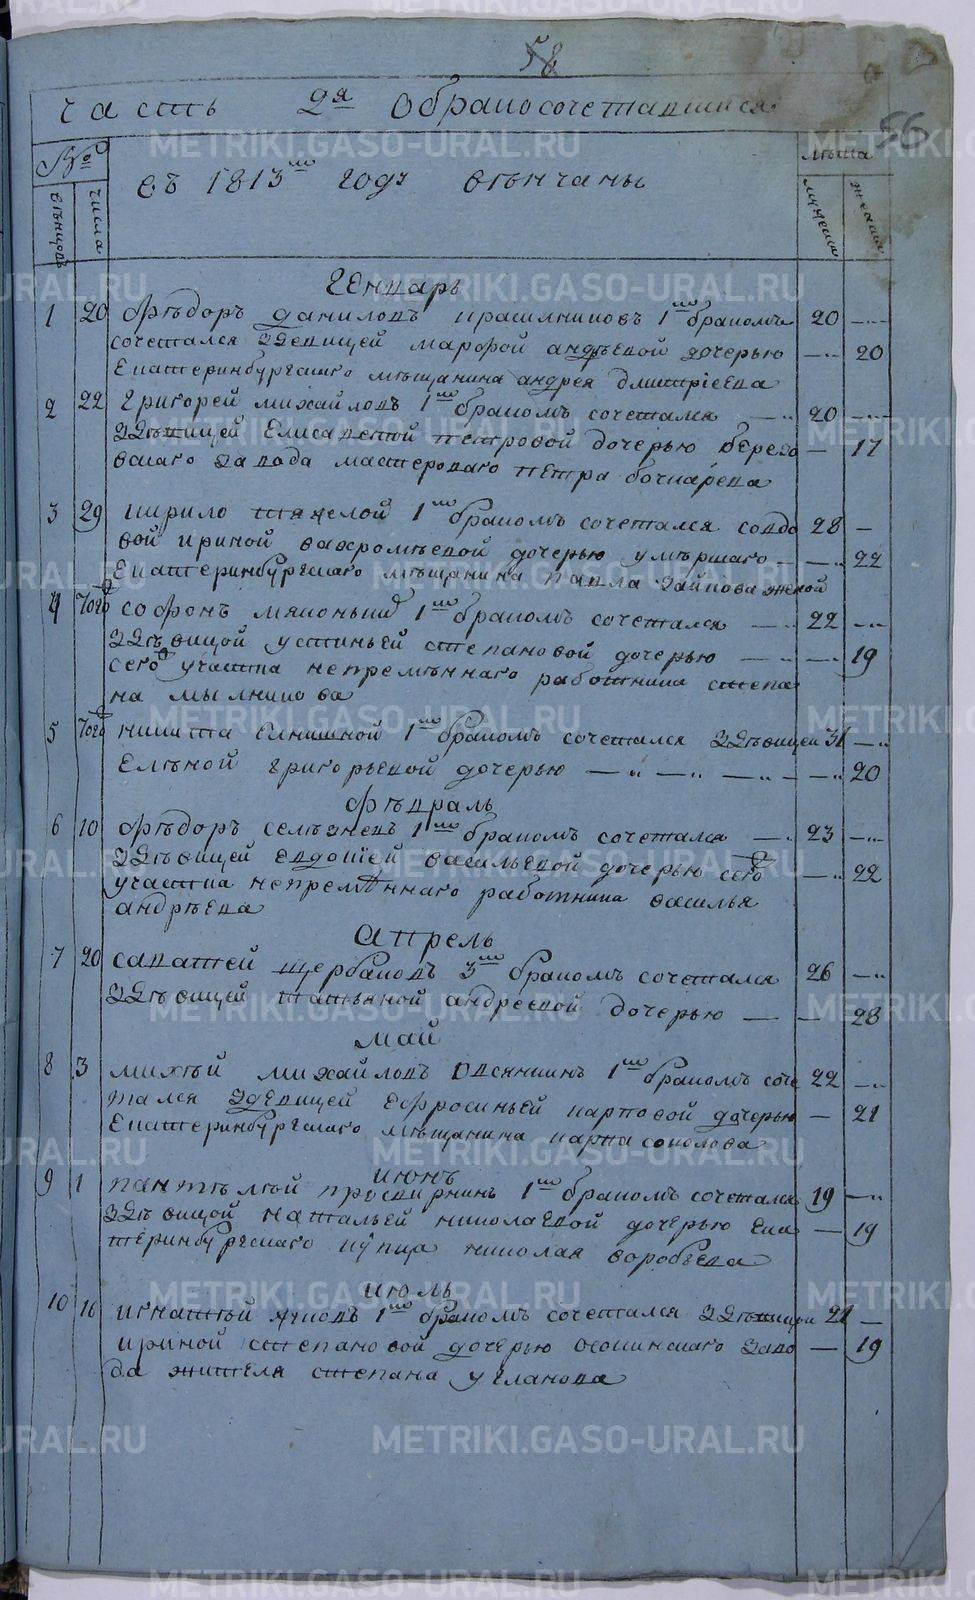 58
56
часть 2я о бракосочетавшихся
№
лѣта
въ 1813мъ году вѣнчаны
вѣнцовъ
числа
мужеска
женска
Генварь
1 20 Фѣдоръ Даниловъ Красилниковъ 1мъ бракомъ 20
сочетался здевицей Марфой Андрѣевой дочерью 20
Екатеринбургскаго мѣщанина Андрея Дмитріева
2 22 Григорей Михайловъ 1мъ бракомъ сочетался 20
здѣвицей Елисаветой Петровой дочерью Березо 17
вскаго завода мастероваго Петра Бочкарева
3 29 Кирило Тяжелой 1мъ бракомъ сочетался совдо 28
вой Ириной Вахромѣевой дочерью умѣршаго 22
Екатеринбургскаго мѣщанина Павла Зайкова женой
4 Того Софонъ Мяконький 1мъ бракомъ сочетался 22
здѣвицой Устиньей Степановой дочерью 19
сего участка непремѣннаго работника Степа
на Мылникова
5 Того Никита Елнишной 1мъ бракомъ сочетался здѣвицей 31
Елѣной Григорьевой дочерью 20
Фѣвраль
6 10 Фѣдоръ Селѣзневъ 1мъ бракомъ сочетался 23
здѣвицей Евдокіей Васильевой дочерью сего 22
участка непремѣннаго работника Василья
Андрѣева
Апрель
7 20 Саватей Щербаковъ 3мъ бракомъ сочетался 26
здѣвицей Татьяной Андреевой дочерью 28
Май
8 3 Михѣй Михайловъ Овсянкинъ 1мъ бракомъ соче 22
тался здевицей Ефросиньей Карповой дочерью 21
Екатеринбургскаго мѣщанина Карпа Соколова
Июнь
9 1 Пантѣлѣй Просвирнинъ 1мъ бракомъ сочетался 19
здѣвицой Натальей Николаевой дочерью Ека 19
теринбургскаго купца Николая Воробьева
Июль
10 16 Игнатѣй Ячновъ 1мъ бракомъ сочетался здѣвицей 21
Ириной Степановой дочерью Осокинскаго заво 19
да жителя Степана Угланова
METRIKI.GASO-URAL.RU